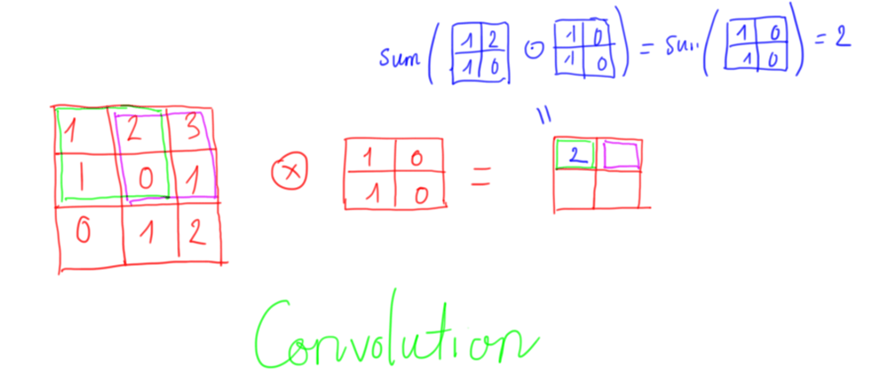 sum ( 1 2 1 0 ⊙ 1 0 1 0 ) = su.. ( 1 0 1 0 ) = 2
=
1 2 3
1 0 1
0 1 2
⊗
1 0
1 0
=
2
Convolution